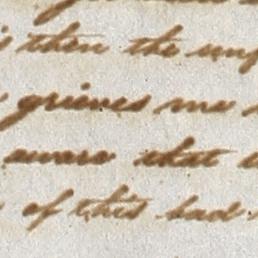 then the
grieves me
aware that
of this bad